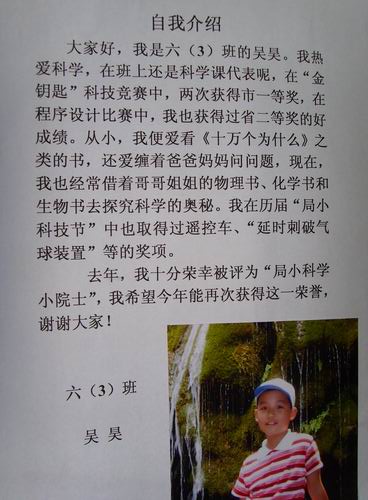 自我介绍
大家好，我是六（3）班的吴昊。我热
爱科学，在班上还是科学课代表呢，在“金
钥匙”科技竞赛中，两次获得市一等奖，在
程序设计比赛中，我也获得过省二等奖的好
成绩。从小，我便爱看《十万个为什么》之
类的书，还爱缠着爸爸妈妈问问题，现在，
我也经常借着哥哥姐姐的物理书、化学书和
生物书去探究科学的奥秘。我在历届“局小
科技节”中也取得过遥控车、“延时刺破气
球装置”等的奖项。
去年，我十分荣幸被评为“局小科学
小院士”，我希望今年能再次获得这一荣誉，
谢谢大家！
六（3）班
吴昊